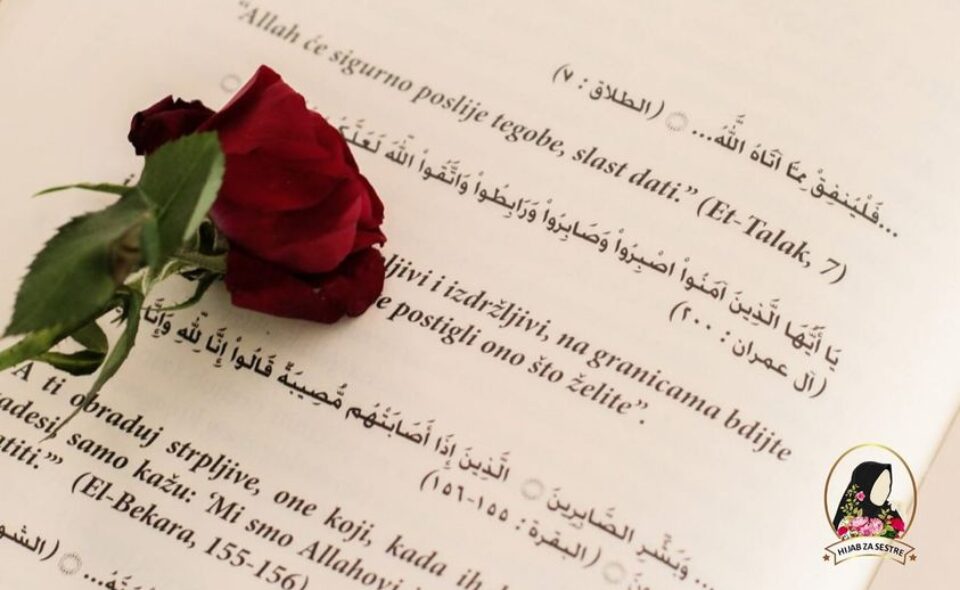 ...فَلْيُنفِقْ مِمَّا آتَاهُ اللَّهُ... (الطلاق : ٧)
“Allah će sigurno poslije tegobe, slast dati.” (Et-Talak, 7)
يَا أَيُّهَا الَّذِينَ آمَنُواْ اصْبِرُواْ وَصَابِرُواْ وَرَابِطُواْ وَاتَّقُواْ اللّهَ
(آل عمران : ٢٠٠)
ljivi i izdržljivi, na granicama bdijte
postigli ono što želite”.
...وَبَشِّرِ الصَّابِرِينَ الَّذِينَ إِذَا أَصَابَتْهُم مُّصِيبَةٌ قَالُواْ إِنَّا لِلّهِ وَإِنَّا
(البقرة : ١٥٥-١٥٦)
A ti obraduj strpljive, one koji, kada ih
adesi, samo kažu: ‘Mi smo Allahovi
atiti.’”
(El-Bekara, 155-156)
HIJAB ZA SESTRE